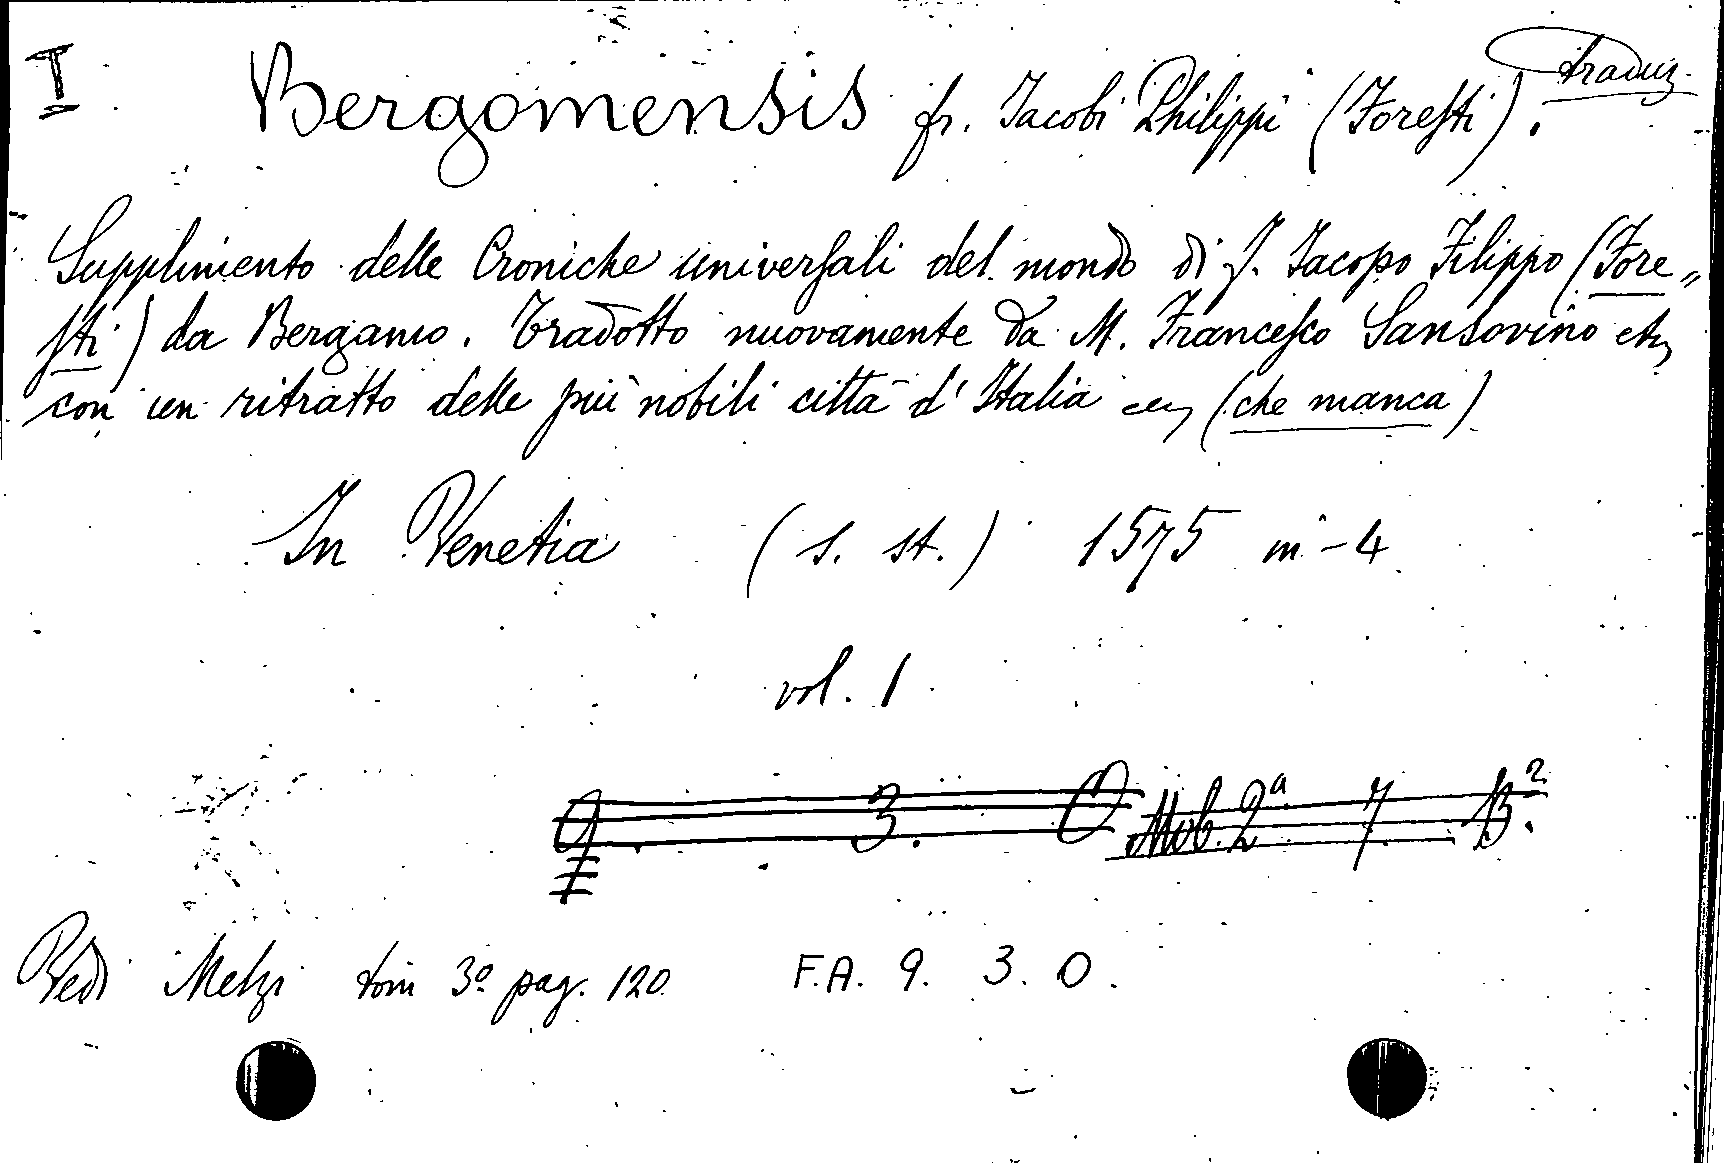 I Bergomensis fr. Jacobi Philippi (Foresti). traduz.
Supplimento delle Croniche universali del mondo di f. Jacopo Filippo (Fore„
sti) da Bergamo. Tradotto nuovamente da M. Francesco Sansovino etc
con un ritratto delle più nobili città d' Italia etc (che manca)
In Venetia (s. st.) 1575 in-4
vol. 1
9. 3. O Mob. 2ª 7 B².
Vedi Melzi tom 3º pag. 120 F.A. 9. 3. O.